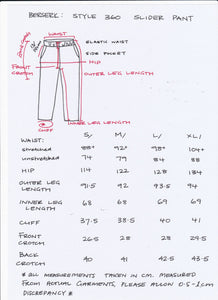 BERSERK: STYLE 360 SLIDER PANT
WAIST
ELASTIC WAIST
SIDE POCKET
FRONT CROTCH
HIP
OUTER LEG LENGTH
INNER LEG LENGTH
CUFF
S/ M/ L/ XL/
WAIST
stretched 88" 92" 98" 104+
unstretched 74 79 84 88
HIP 114 122 128 134
OUTER LEG LENGTH 91.5 92 93.5 96
INNER LEG LENGTH 68 68 69 69
CUFF 37.5 38.5 40 41
FRONT CROTCH 26.5 28 28 29.5
BACK CROTCH 40 41 42.5 43.5
* ALL MEASUREMENTS TAKEN IN CM. MEASURED
FROM ACTUAL GARMENTS, PLEASE ALLOW 0.5-1cm
DISCREPANCY *